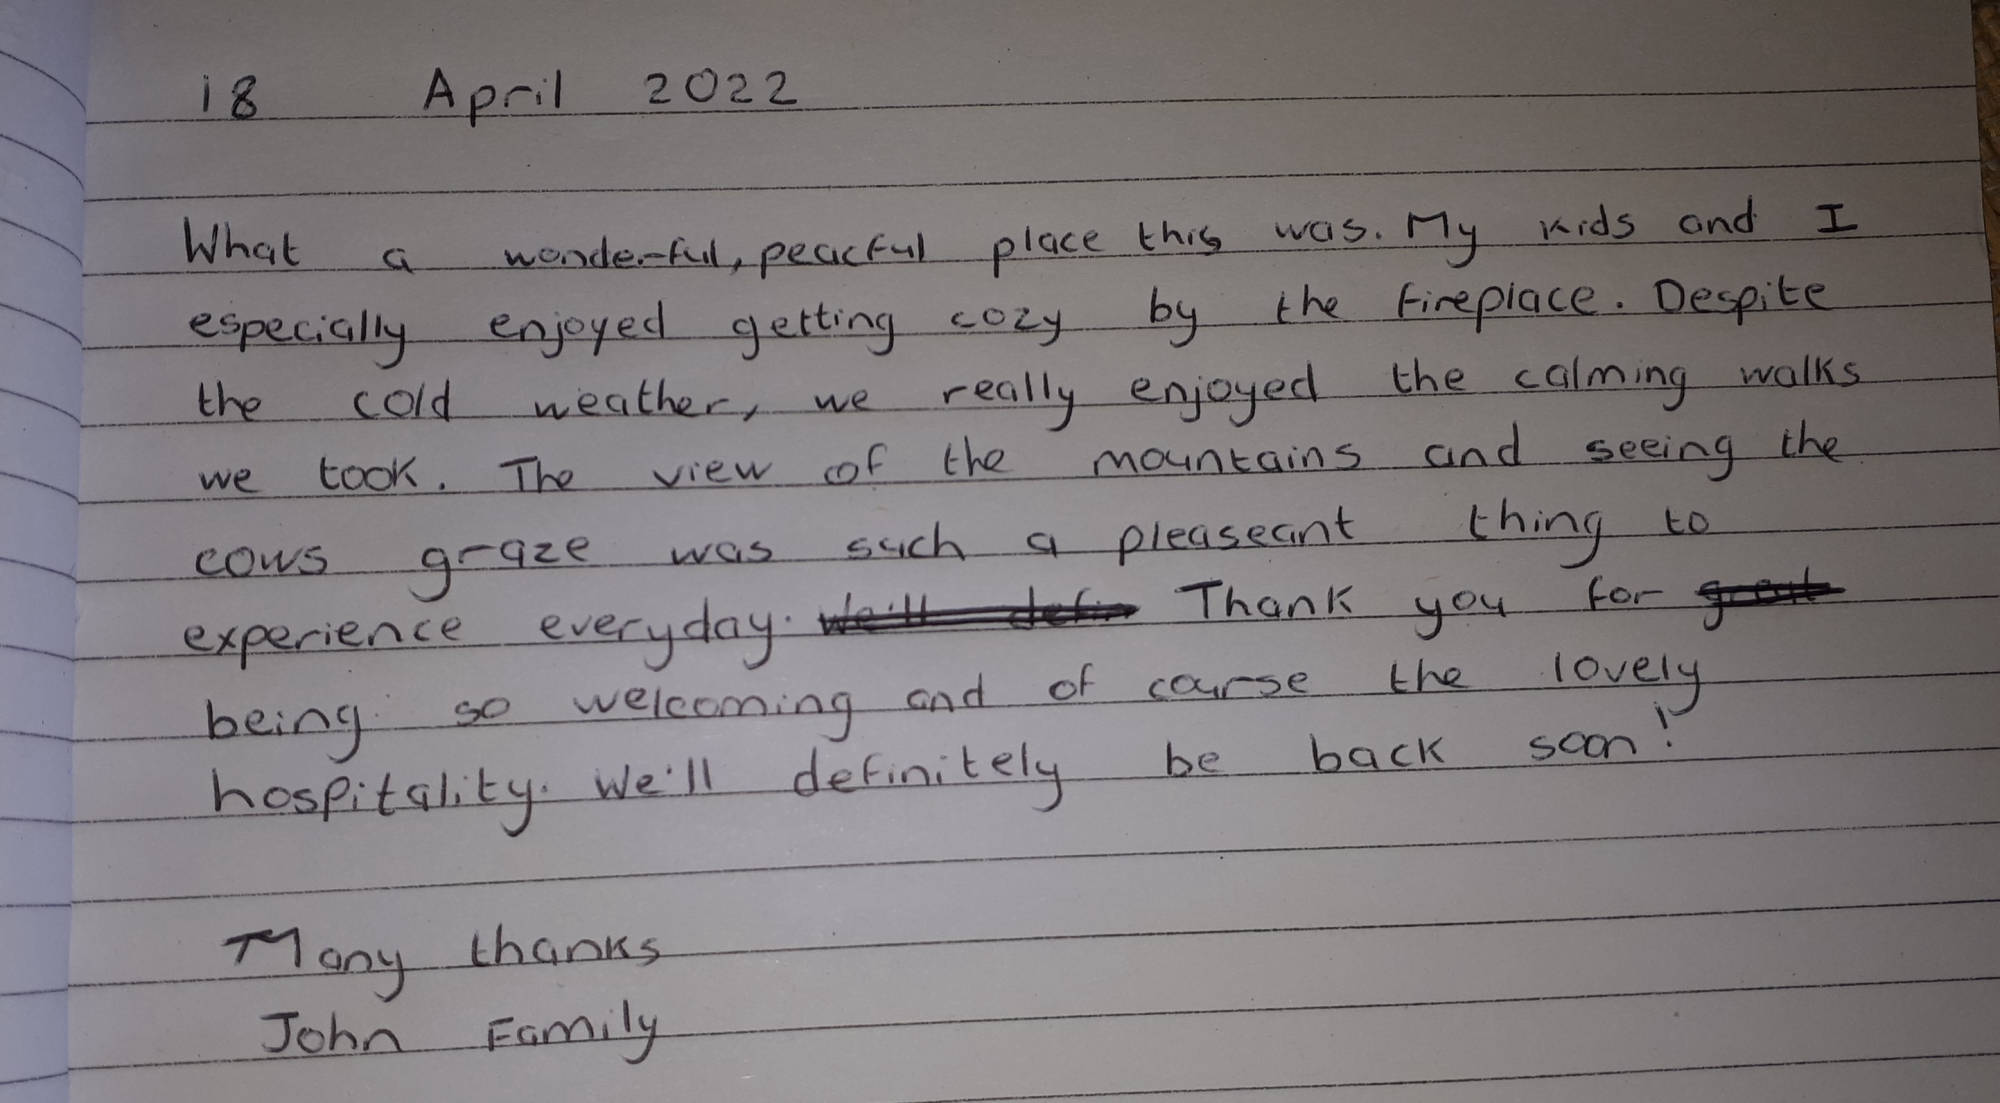 18 April 2022
What a wonderful, peacful place this was. My kids and I
especially enjoyed getting cozy by the fireplace. Despite
the cold weather, we really enjoyed the calming walks
we took. The view of the mountains and seeing the
cows graze was such a pleaseant thing to
experience everyday. We'll defin Thank you for great
being so welcoming and of course the lovely
hospitality. We'll definitely be back soon!
Many thanks
John Family